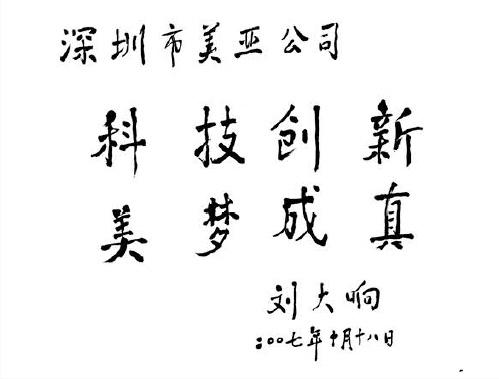 深圳市美亚公司
科技创新
美梦成真
刘大响
二〇〇七年十月十八日